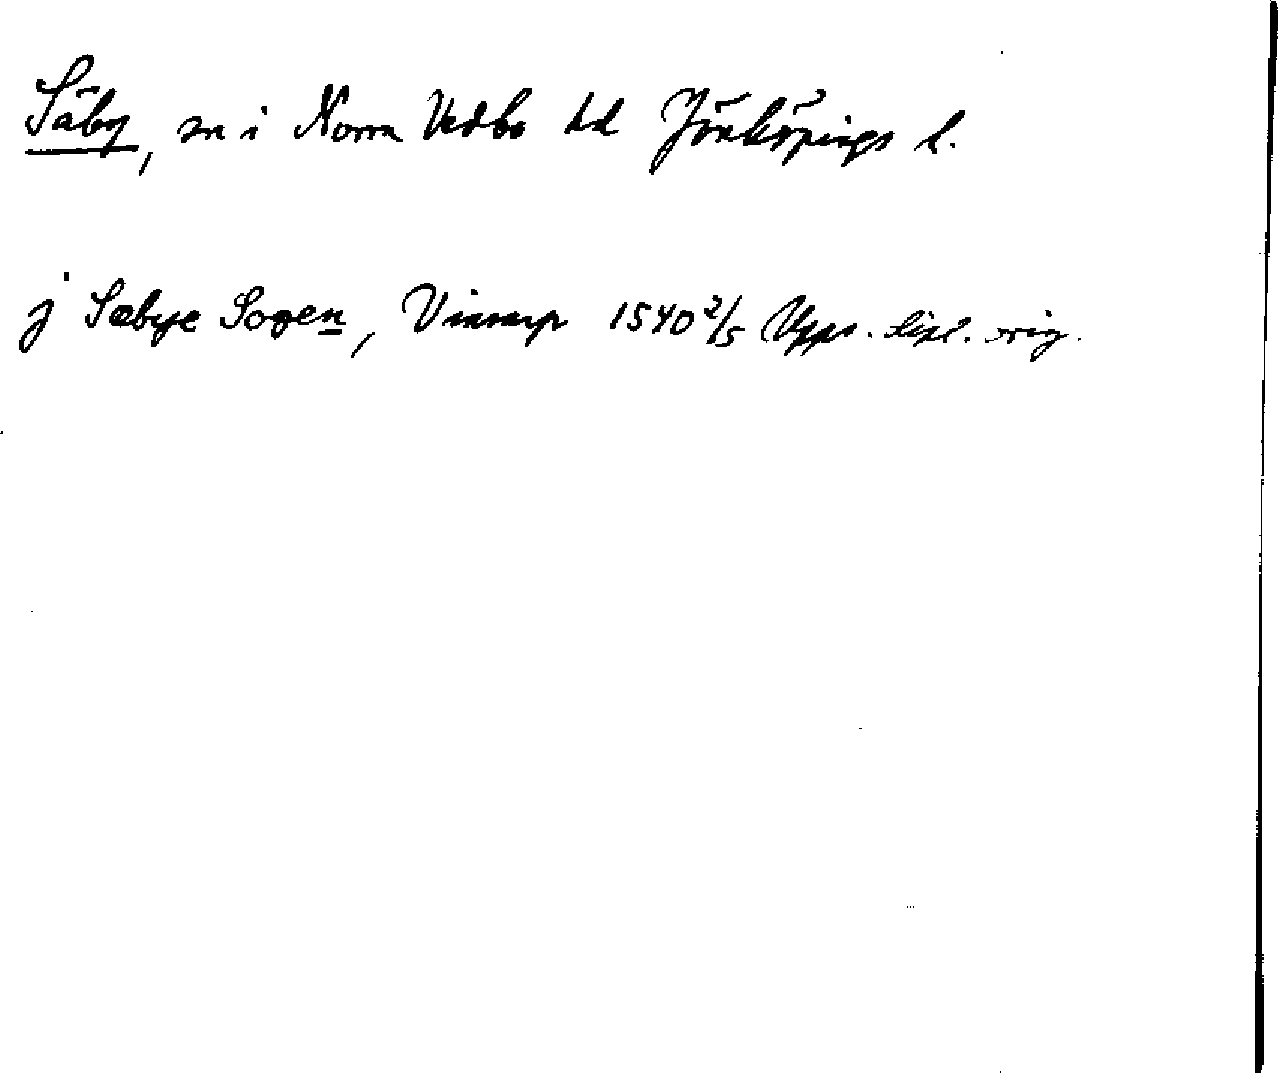 Säby, sn i Norra Vedbo hd Jönköpings l.
j Sæbye Sogen, Vinarp 1540 2/5 Upps. dipl. orig.